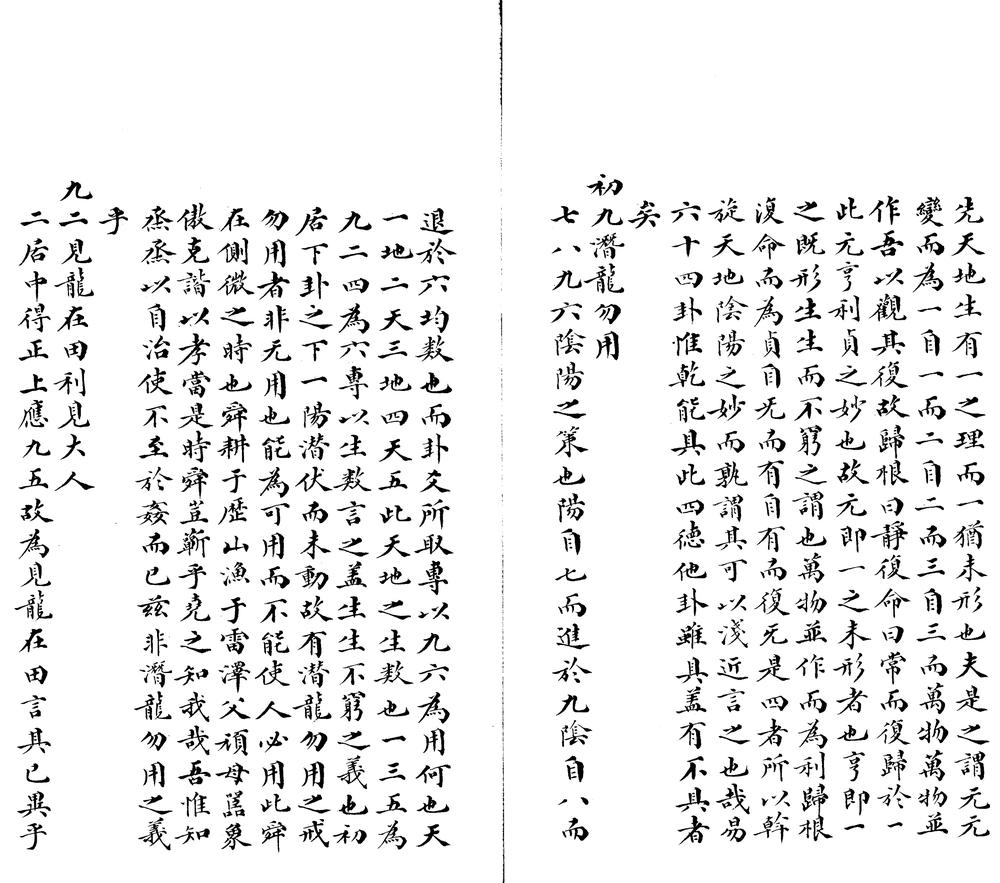 先天地生有一之理而一猶未形也夫是之謂元元
變而為一自一而二自二而三自三而萬物萬物並
作吾以觀其復故歸根曰靜復命曰常而復歸於一
此元亨利貞之妙也故元即一之未形者也亨即一
之既形生生而不窮之謂也萬物並作而為利歸根
復命而為貞自旡而有自有而復旡是四者所以斡
旋天地陰陽之妙而孰謂其可以淺近言之也哉易
六十四卦惟乾能具此四德他卦雖具蓋有不具者
矣
初九潛龍勿用
七八九六陰陽之策也陽自七而進於九陰自八而
退於六均数也而卦爻所取專以九六為用何也天
一地二天三地四天五此天地之生数也一三五為
九二四為六專以生数言之盖生生不窮之義也初
居下卦之下一陽潜伏而未動故有潜龍勿用之戒
勿用者非无用也能為可用而不能使人必用此舜
在側微之時也舜耕于歷山漁于雷澤父頑母嚚象
傲克諧以孝當是時舜豈蘄乎堯之知我哉吾惟知
烝烝以自治使不至於姦而已兹非潛龍勿用之義
乎
九二見龍在田利見大人
二居中得正上應九五故為見龍在田言其已異乎